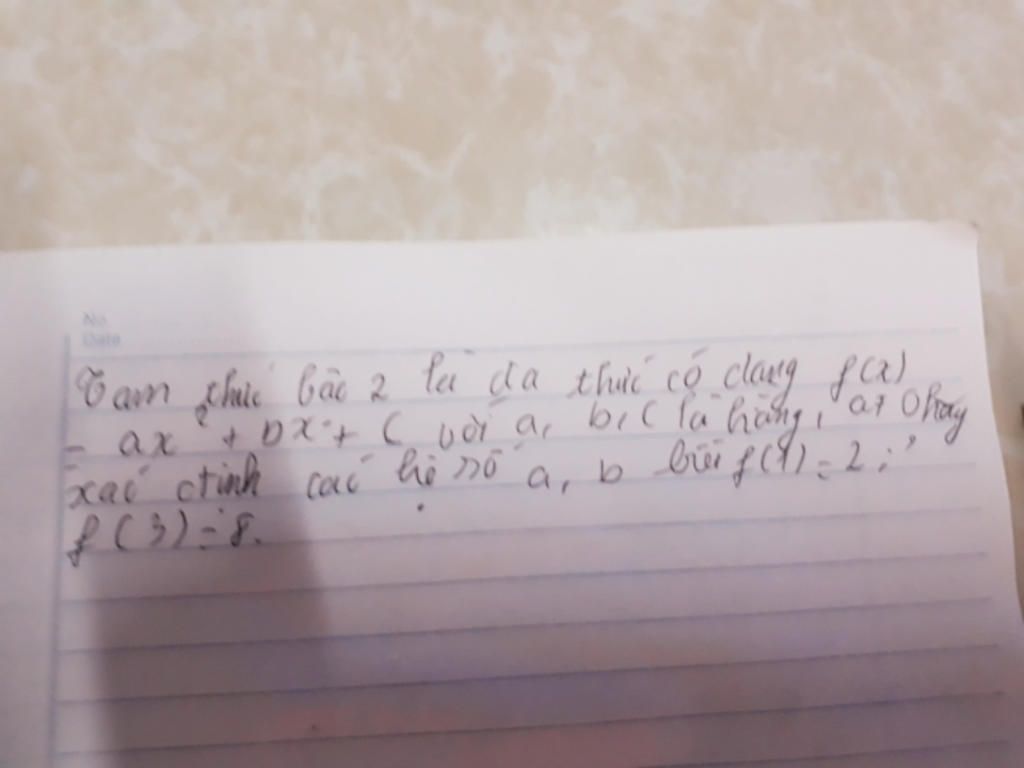 No
Date
Tam thức bâc 2 là đa thức có dạng f(x)
= ax² + bx + c với a, b, c là hằng, a≠0 hãy
xác định các hệ số a, b biết f(1) = 2;
f(3) = 8.